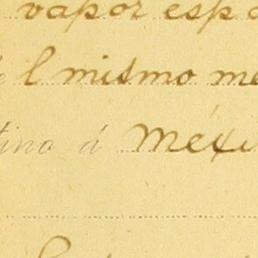 vapor esp
l mismo me
tino á Méxi